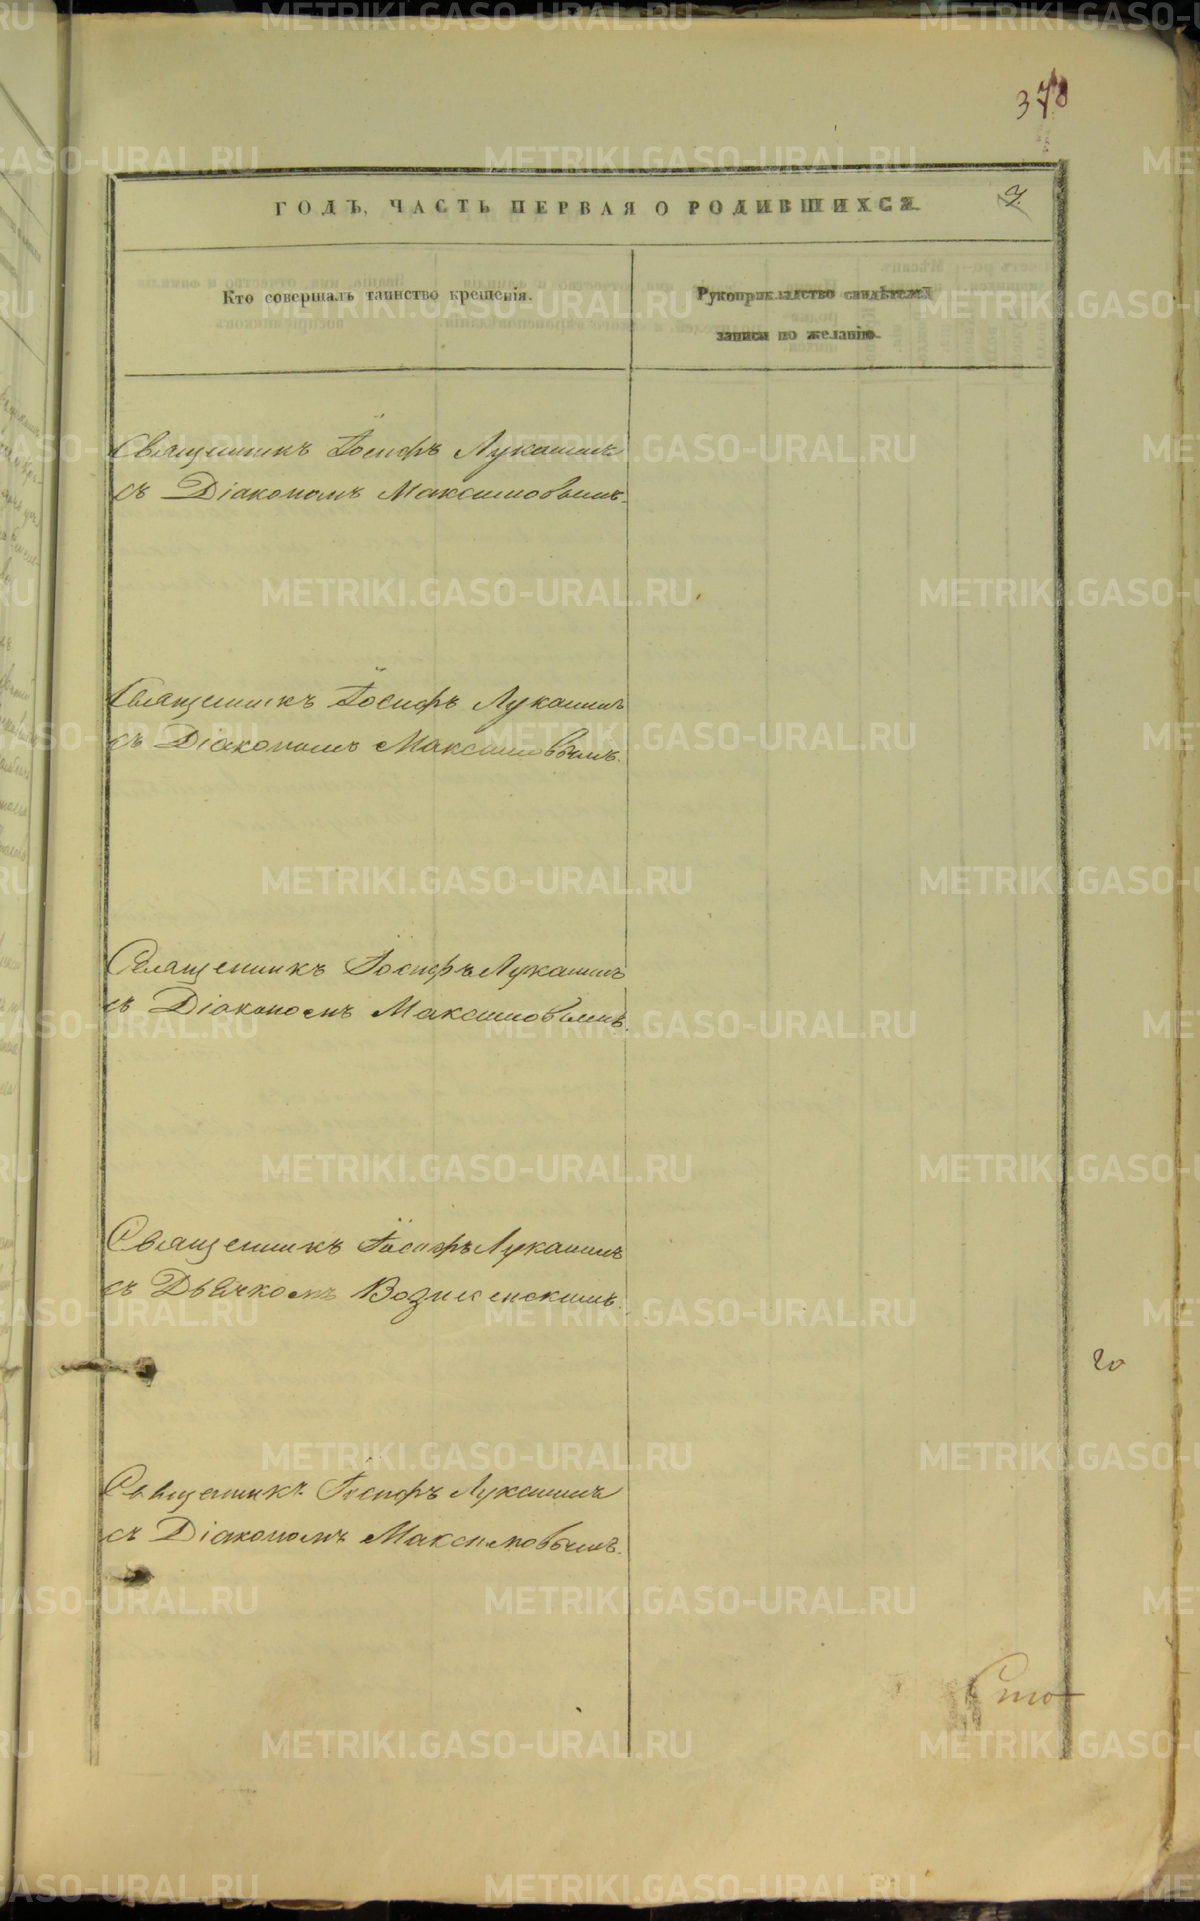 378
ГОДЪ, ЧАСТЬ ПЕРВАЯ О РОДИВШИХСЯ
7.
Кто совершалъ таинство крещенія.
Рукоприкладство свидѣтелей
записи по желанію.
Священникъ Іосифъ Лукашинъ
съ Діакономъ Максимовымъ.
Священникъ Іосифъ Лукашинъ
съ Діакономъ Максимовымъ.
Священникъ Іосифъ Лукашинъ
съ Діакономъ Максимовымъ.
Священникъ Іосифъ Лукашинъ
съ Дьячкомъ Вознесенскимъ.
Священникъ Іосифъ Лукашинъ
съ Діакономъ Максимовымъ.
METRIKI.GASO-URAL.RU